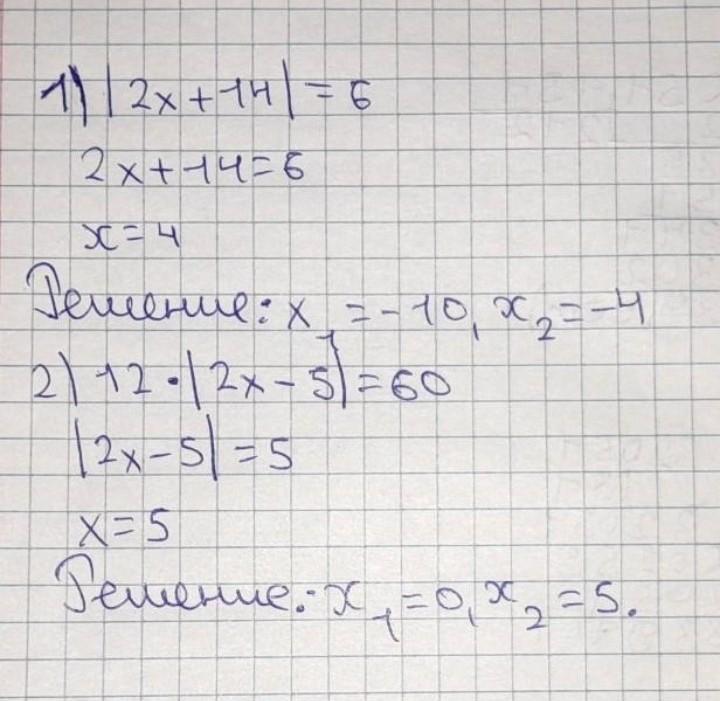 1) |2x+14|=6
2x+14=6
x=4
Решение: x₁=-10, x₂=-4
2) 12·|2x-5|=60
|2x-5|=5
x=5
Решение: x₁=0, x₂=5.